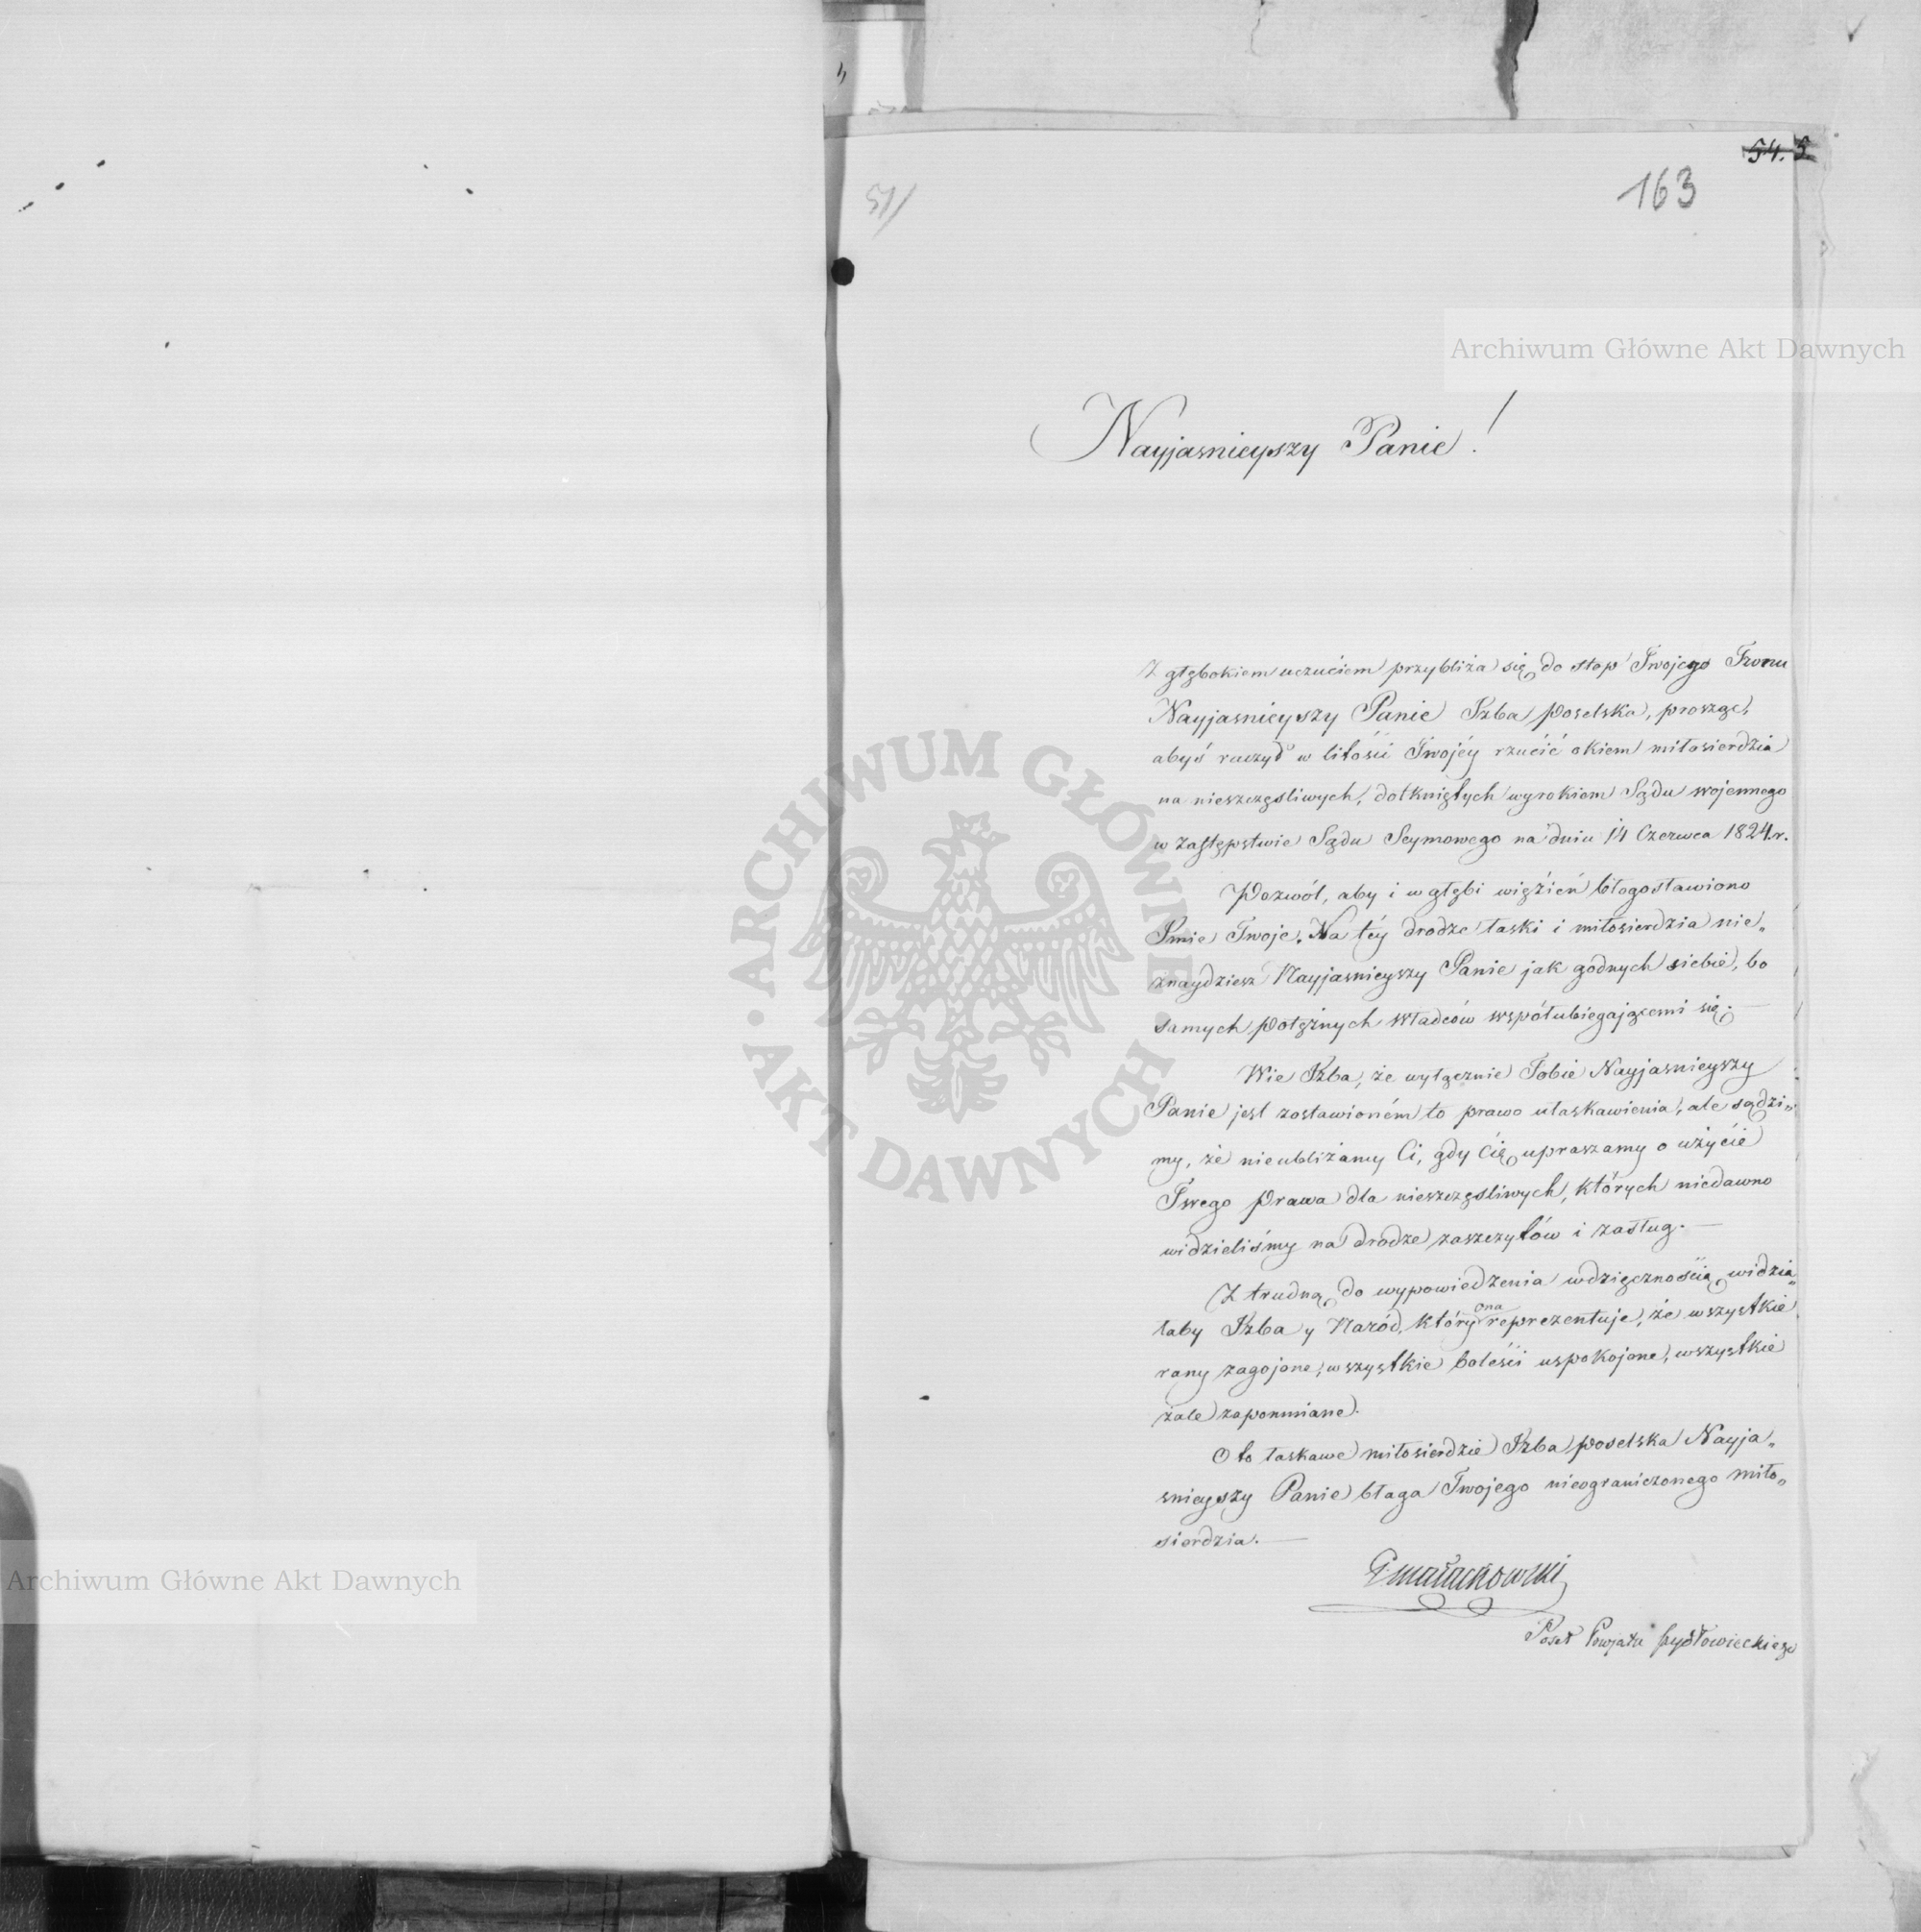 54. 5
163
51/
Archiwum Główne Akt Dawnych
Nayjasnieyszy Panie!
Z głębokiem uczuciem przybliża się do stóp Twojego Tronu
Nayjasnieyszy Panie Izba Poselska, prosząc,
abyś raczył w litości Twojéy rzucić okiem miłosierdzia
na nieszczęśliwych, dotkniętych wyrokiem Sądu wojennego
w zastępstwie Sądu Seymowego na dniu 14 Czerwca 1824.r.
Pozwól, aby i w głębi więzień błogosławiono
Imie Twoje. Na téy drodze łaski i miłosierdzia nie„
znaydziesz Nayjasnieyszy Panie jak godnych siebie, bo
samych potężnych Władców współubiegającemi się. —
Wie Izba, że wyłącznie Tobie Nayjasnieyszy
Panie jest zostawioném to prawo ułaskawienia, ale sądzi„
my, że nieubliżamy Ci, gdy Cię upraszamy o użycie
Twego Prawa dla nieszczęśliwych, których niedawno
widzieliśmy na drodze zaszczytów i zasług. —
Z trudną do wypowiedzenia wdzięcznością widzia„
łaby Izba y Naród, który ona reprezentuje, że wszystkie
rany zagojone, wszystkie boleści uspokojone, wszystkie
żale zapomniane.
O to łaskawe miłosierdzie Izba poselska Nayja„
snieyszy Panie błaga Twojego nieograniczonego miło„
sierdzia. —
GMałachowski
Poseł Powiatu Szydłowieckiego
ARCHIWUM GŁÓWNE • AKT DAWNYCH •
Archiwum Główne Akt Dawnych